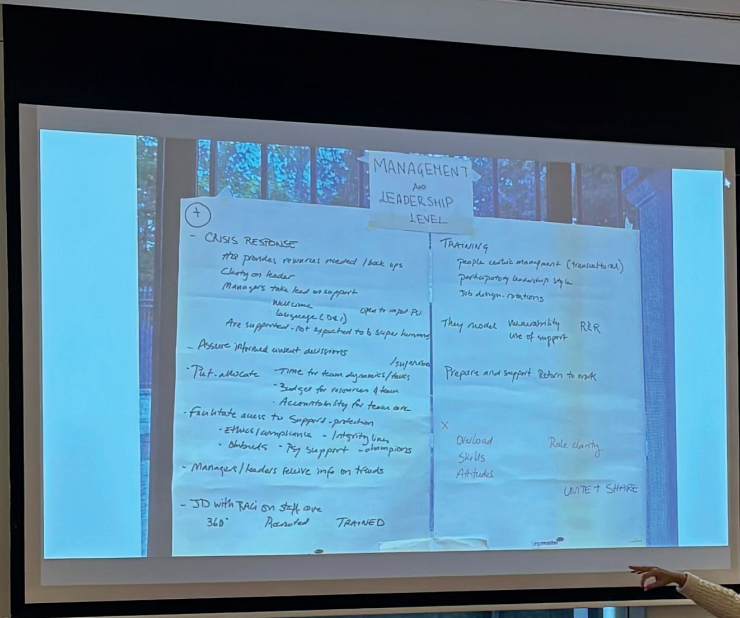 MANAGEMENT
AND
LEADERSHIP
LEVEL
+
- CRISIS RESPONSE
HQ provides resources needed / back ups
Clarity on leader
Managers take lead on support
Welcome
language (DEI)
open to input
Are supported - not expected to b super humans
- Assure informed consent decisions
- Put - allocate Time for team dynamics/talks
- Budget for resources & team
- Accountability for team care
- Facilitate access to support - protection
- Ethics/compliance - Integrity line
- Ombuds - Psy support - champions
- Managers/leaders receive info on trends
- JD with RACI on staff care
360° Recruited TRAINED
TRAINING
people centric management (transcultural)
participatory leadership style
Job design - rotations
They model vulnerability R&R
use of support
Prepare and support Return to work
X
Overload Role clarity
Skills
Attitudes
UNITE + SHARE
Legamaster